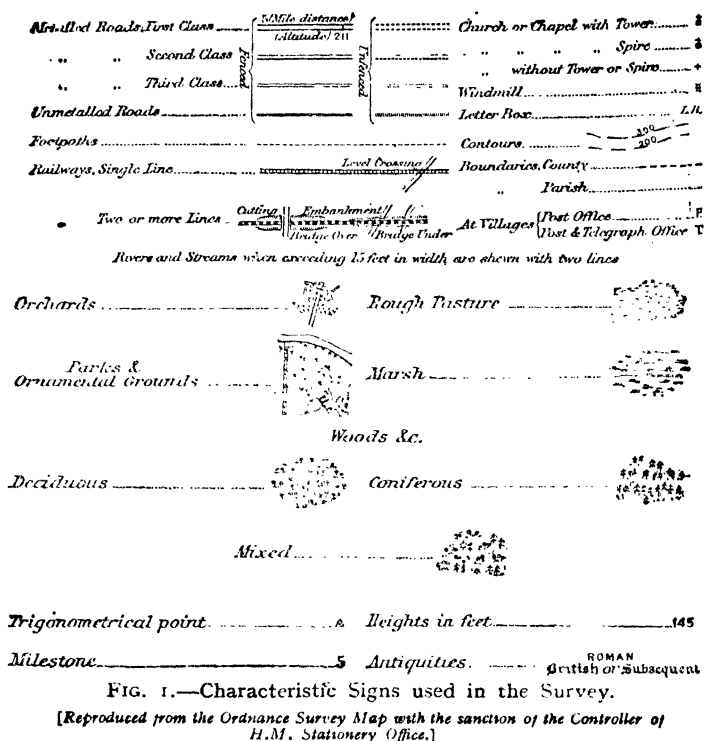 Metalled Roads, First Class
Mile distance
(Altitude) 211
Second Class
Third Class
Fenced
Unfenced
Unmetalled Roads
Footpaths
Railways, Single Line
Level Crossing
Two or more Lines
Cutting
Embankment
Bridge Over
Bridge Under
Church or Chapel with Tower
„ „ „ „ Spire
„ without Tower or Spire
Windmill
Letter Box L.B.
Contours 200
200
Boundaries, County
„ Parish
At Villages Post Office P
Post & Telegraph Office T
Rivers and Streams when exceeding 15 feet in width are shewn with two lines
Orchards
Rough Pasture
Parks &
Ornamental Grounds
Marsh
Woods &c.
Deciduous
Coniferous
Mixed
Trigonometrical point
Heights in feet 145
Milestone 5
Antiquities. ROMAN
British or Subsequent
FIG. 1.—Characteristic Signs used in the Survey.
[Reproduced from the Ordnance Survey Map with the sanction of the Controller of
H.M. Stationery Office.]